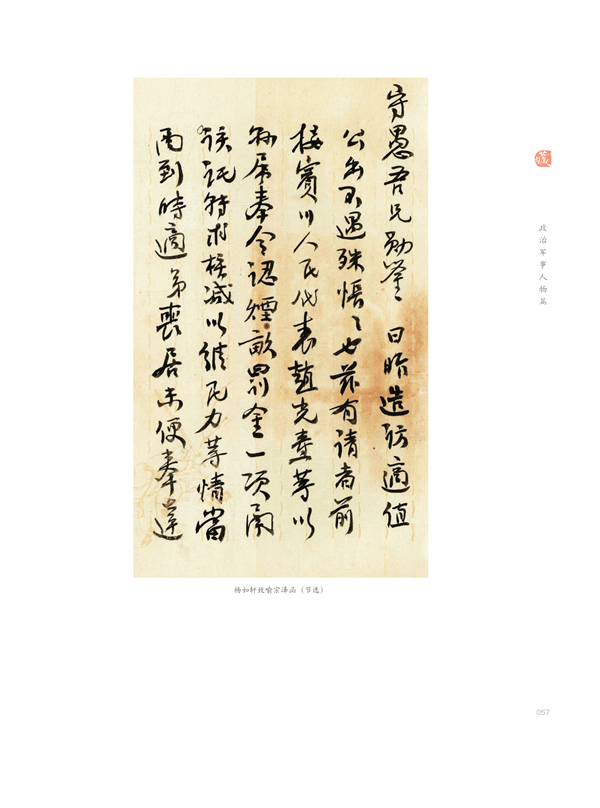 守愚吾兄勋鉴 日昨造访适值
公出不遇殊怅〻也兹有请者前
接宾川人民代表赵光焘等以
县属奉令认烟亩罚金一项
该托特求核减以纾民力等情当
到时适弟丧居未便奉达
政治军事人物篇
杨如轩致喻宗泽函（节选）
057